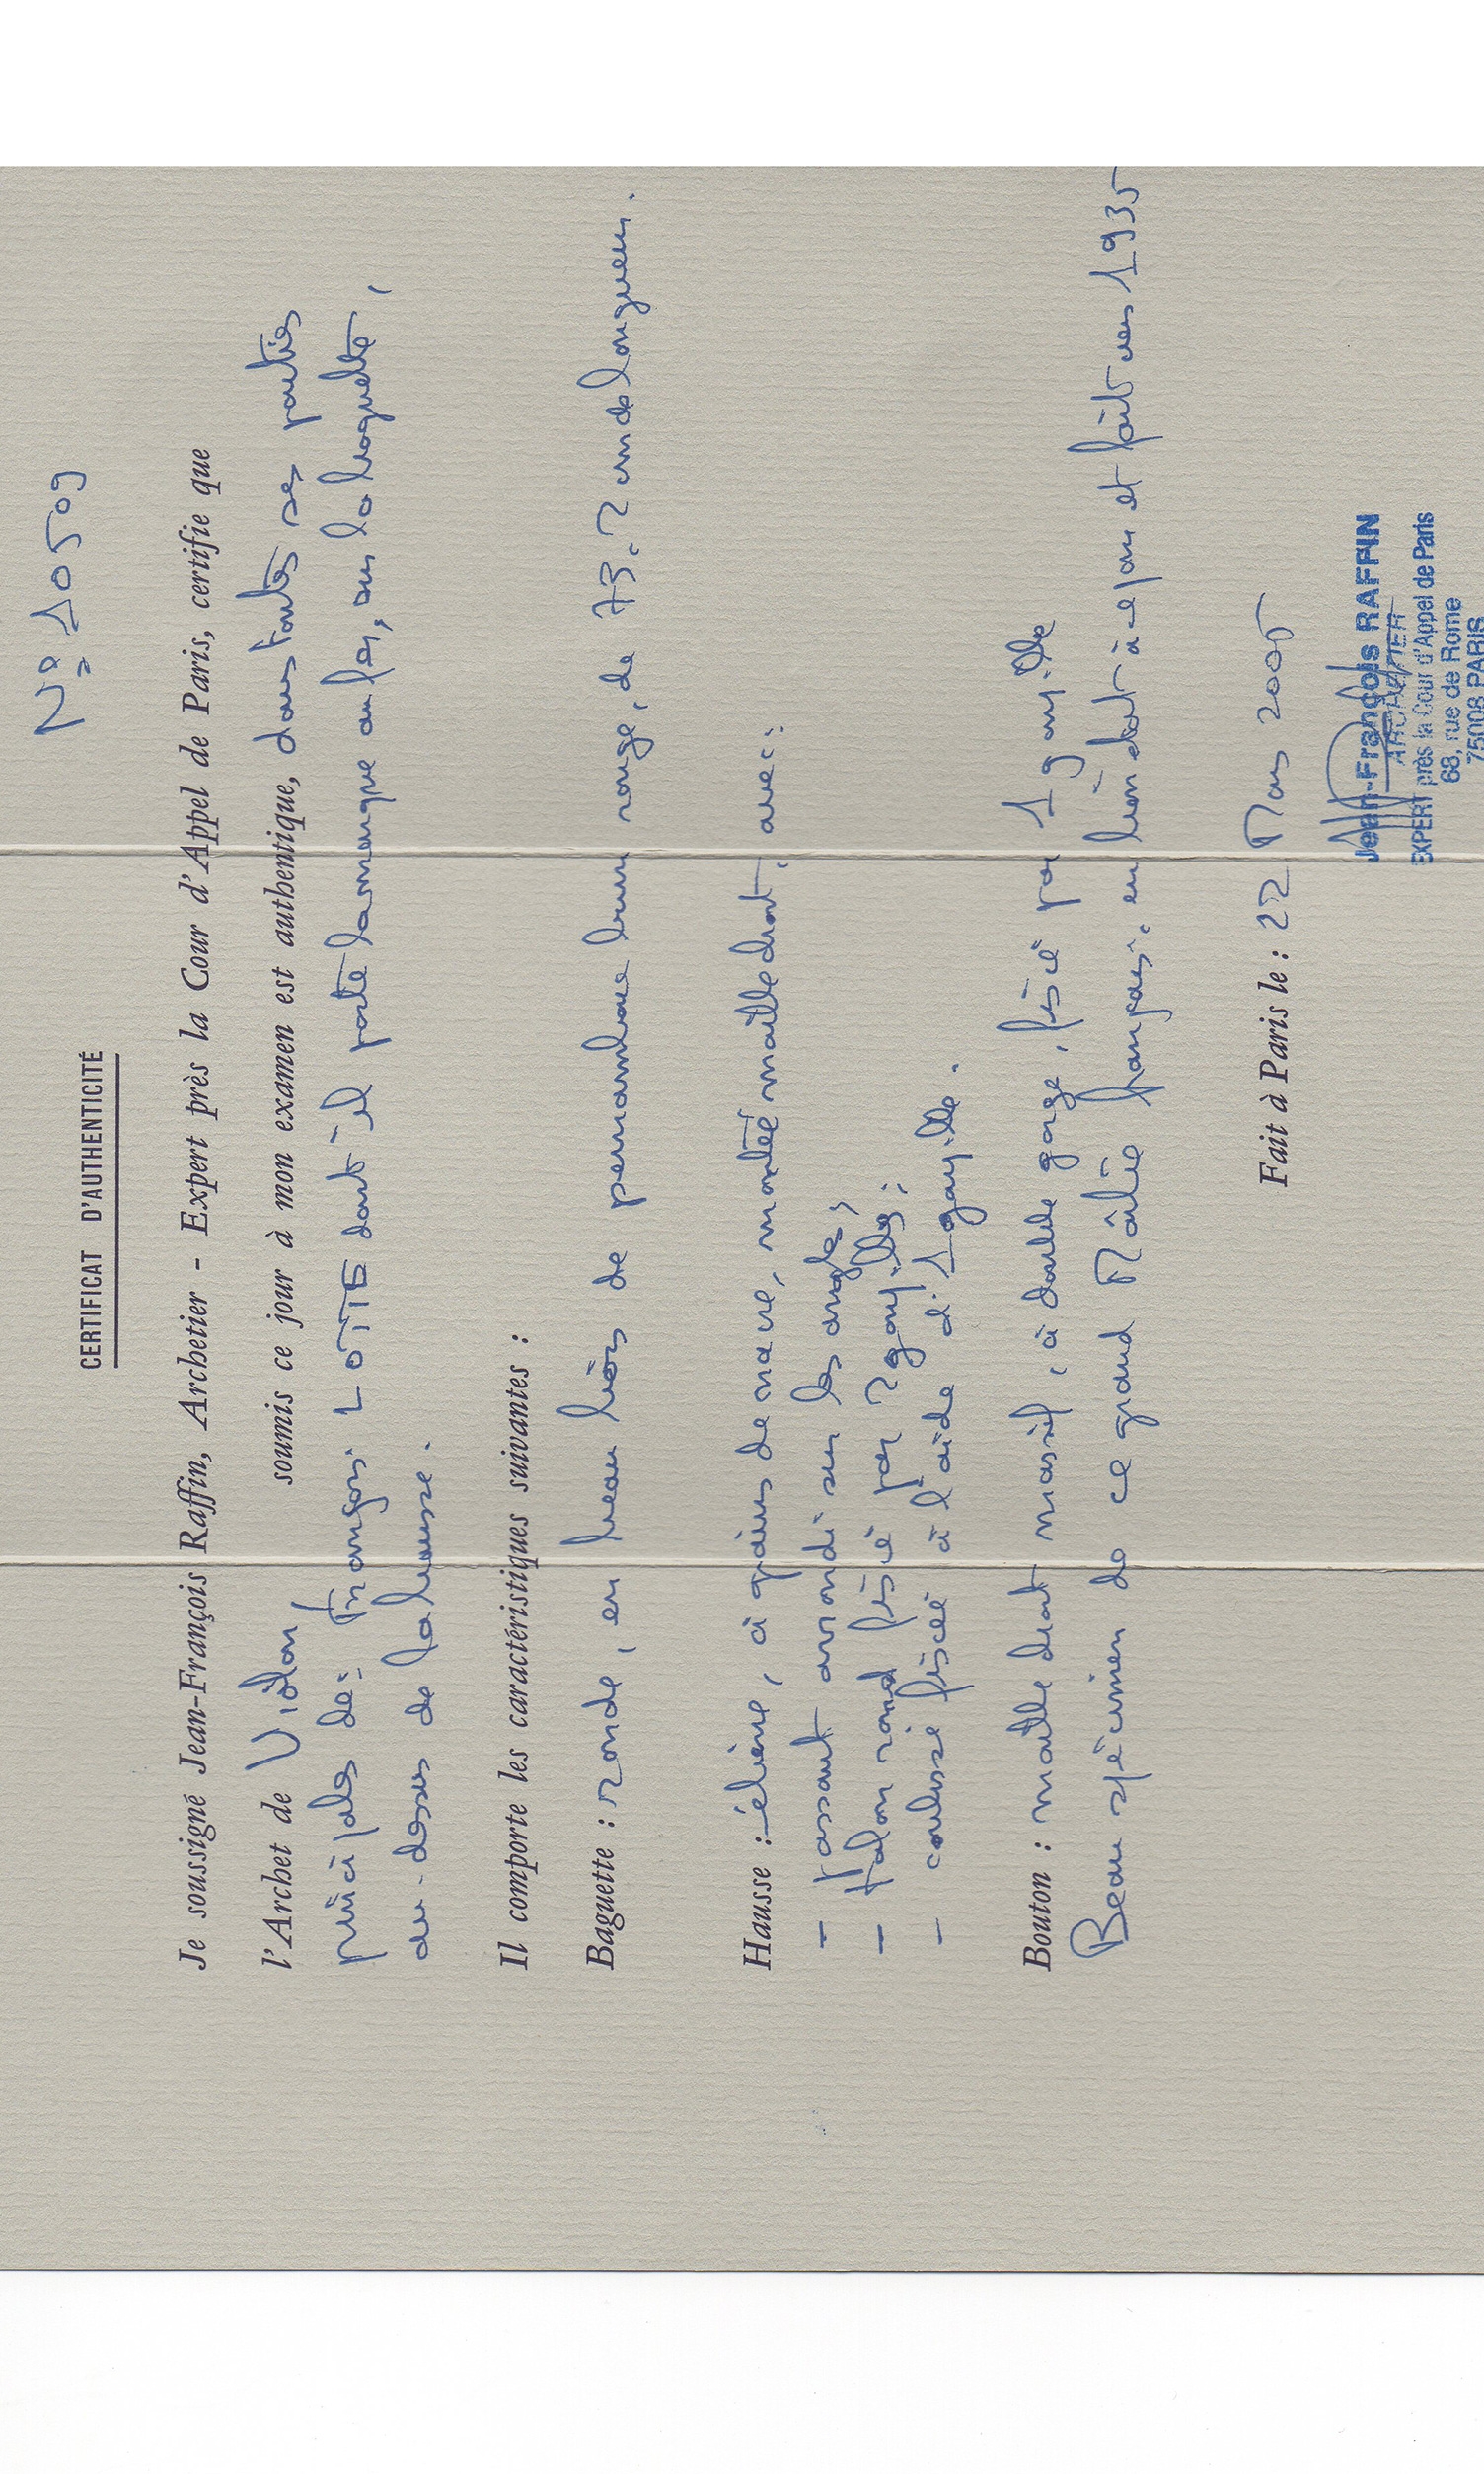 N° 10509
CERTIFICAT D'AUTHENTICITÉ
Je soussigné Jean-François Raffin, Archetier - Expert près la Cour d'Appel de Paris, certifie que
l'Archet de Violon, soumis ce jour à mon examen est authentique, dans toutes ses parties
principales de: François LOTTE dont il porte la marque au fer, sur la baguette,
au-dessus de la hausse.
Il comporte les caractéristiques suivantes :
Baguette : ronde, en beau bois de pernambouc brun rouge, de 73.2 cm de longueur.
Hausse : ébène, à grains de nacre, montée maillechort, avec:
- passant arrondi sur les angles;
- talon rond fixé par 2 goupilles;
- coulisse fixée à l'aide d'1 goupille.
Bouton : maillechort massif, à double gorge, fixé par 1 goupille
Beau spécimen de ce grand Maître français. en bon état à ce jour et fait vers 1935
Fait à Paris le : 22 Mars 2005
Jean-François RAFFIN
ARCHETIER
EXPERT près la Cour d'Appel de Paris
68, rue de Rome
75008 PARIS